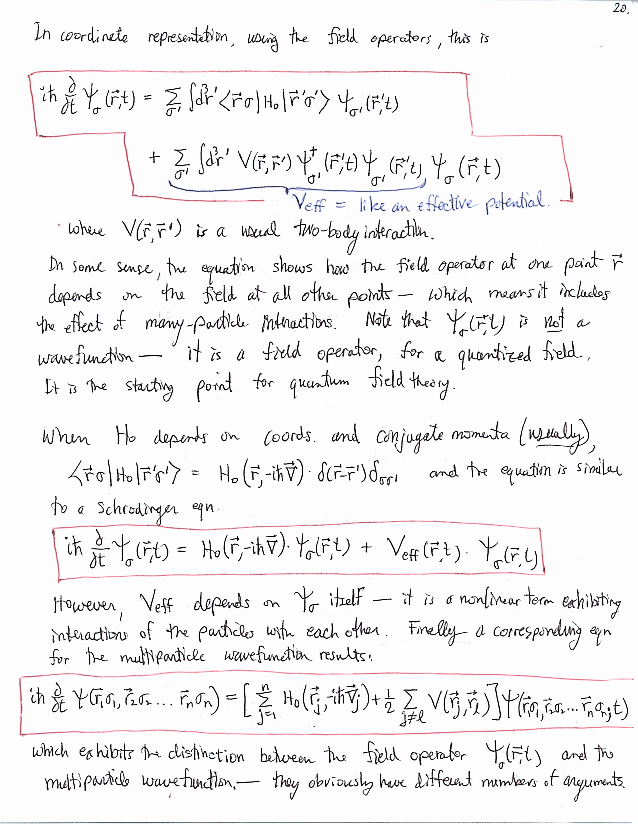 20.
In coordinate representation, using the field operators, this is
iħ ∂/∂t Ψ_σ(r⃗,t) = Σ_σ' ∫d³r' ⟨r⃗σ|H₀|r⃗'σ'⟩ Ψ_σ'(r⃗',t)
+ Σ_σ' ∫d³r' V(r⃗,r⃗') Ψ†_σ'(r⃗',t) Ψ_σ'(r⃗',t) Ψ_σ(r⃗,t)
Veff = like an effective potential.
where V(r⃗,r⃗') is a usual two-body interaction.
In some sense, the equation shows how the field operator at one point r⃗
depends on the field at all other points — which means it includes
the effect of many-particle interactions. Note that Ψ_σ(r⃗,t) is not a
wavefunction — it is a field operator, for a quantized field.,
It is the starting point for quantum field theory.
When H₀ depends on coords. and conjugate momenta (usually),
⟨r⃗σ|H₀|r⃗'σ'⟩ = H₀(r⃗,-iħ∇⃗)· δ(r⃗-r⃗')δ_σσ' and the equation is similar
to a Schrodinger eqn.
iħ ∂/∂t Ψ_σ(r⃗,t) = H₀(r⃗,-iħ∇⃗)· Ψ_σ(r⃗,t) + Veff(r⃗,t)· Ψ_σ(r⃗,t)
However, Veff depends on Ψ_σ itself — it is a nonlinear term exhibiting
interactions of the particles with each other. Finally a corresponding eqn
for the multiparticle wavefunction results:
iħ ∂/∂t Ψ(r⃗₁σ₁, r⃗₂σ₂ ... r⃗ₙσₙ) = [ Σ_{j=1}^n H₀(r⃗ⱼ,-iħ∇⃗ⱼ) + ½ Σ_{j≠l} V(r⃗ⱼ,r⃗_l) ] Ψ(r⃗₁σ₁, r⃗₂σ₂... r⃗ₙσₙ;t)
which exhibits the distinction between the field operator Ψ(r⃗,t) and the
multiparticle wavefunction, — they obviously have different numbers of arguments.